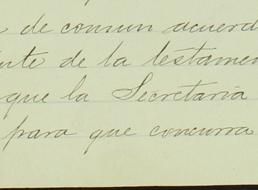 de comun acuerd
de la testamen
que la Secretaria
para que concurra